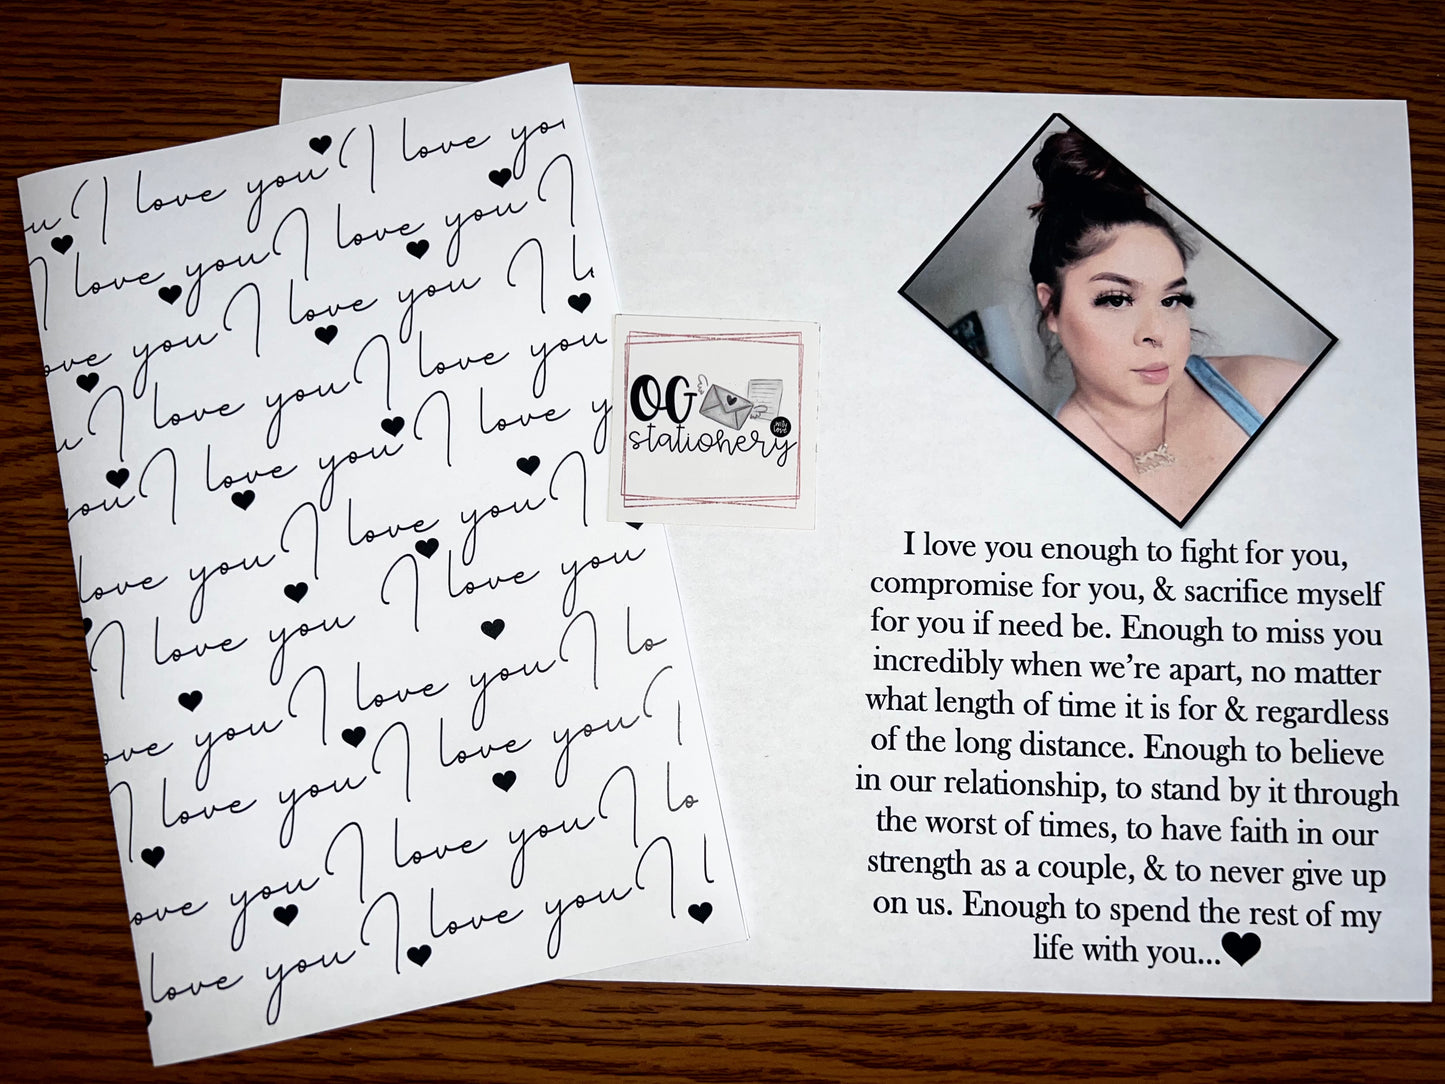 u I love you I love you
I love you I love you I
ove you I love you I l
u I love you I love you
you I love you I love y
love you I love you I
I love you I love you
ove you I love you I lo
I love you I love you I
ove you I love you I lo
love you I love you I l
OG
with
love
stationery
I love you enough to fight for you,
compromise for you, & sacrifice myself
for you if need be. Enough to miss you
incredibly when we’re apart, no matter
what length of time it is for & regardless
of the long distance. Enough to believe
in our relationship, to stand by it through
the worst of times, to have faith in our
strength as a couple, & to never give up
on us. Enough to spend the rest of my
life with you...